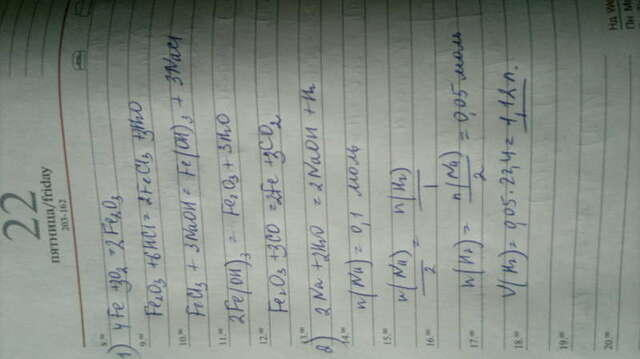 22
пятница/friday
203-162
8.00
1) 4Fe + 3O2 = 2Fe2O3
9.00
Fe2O3 + 6HCl = 2FeCl3 + 3H2O
10.00
FeCl3 + 3NaOH = Fe(OH)3 + 3NaCl
11.00
2Fe(OH)3 = Fe2O3 + 3H2O
12.00
Fe2O3 + 3CO = 2Fe + 3CO2
13.00
2) 2Na + 2H2O = 2NaOH + H2
14.00
n(Na) = 0,1 моль
15.00
n(Na)/2 = n(H2)/1
16.00
17.00
n(H2) = n(Na)/2 = 0,05 моль
18.00
V(H2) = 0,05·22,4 = 1,12 л.
19.00
20.00